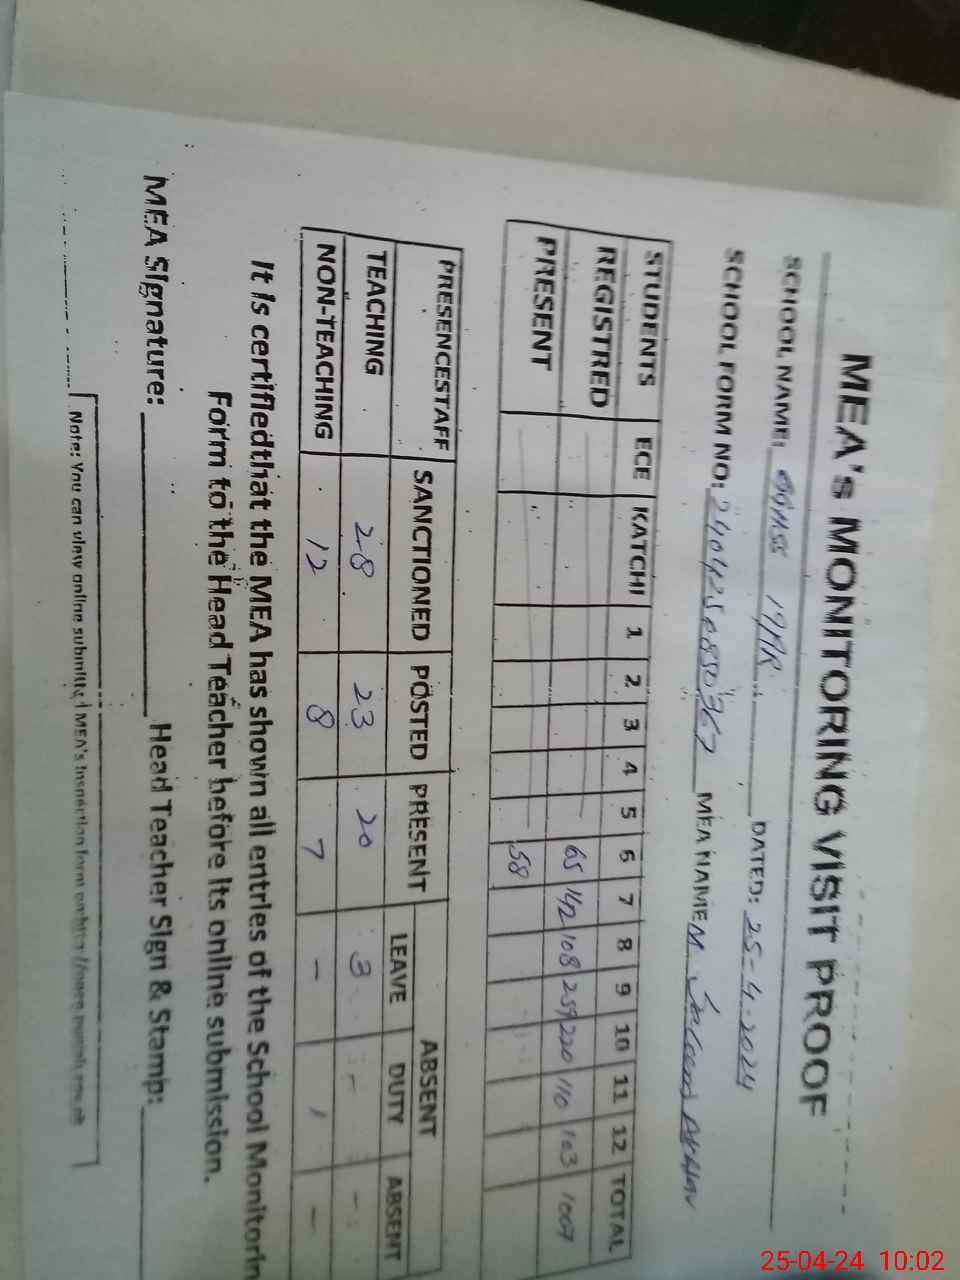 MEA's MONITORING VISIT PROOF
SCHOOL NAME: GGHSS 19/1R DATED: 25-4-2024
SCHOOL FORM NO: MEA NAME M Akhtar
STUDENTS ECE KATCHI 1 2 3 4 5 6 7 8 9 10 11 12 TOTAL
REGISTRED 65 142 108 259 220 110 103 1007
PRESENT 58
PRESENCESTAFF SANCTIONED POSTED PRESENT ABSENT
LEAVE DUTY ABSENT
TEACHING 28 23 20 3 - -
NON-TEACHING 12 8 7 - 1 -
It is certifiedthat the MEA has shown all entries of the School Monitorin
Form to the Head Teacher before its online submission.
MEA Signature: Head Teacher Sign & Stamp:
Note: You can view online submitted MEA's Inspection form
25-04-24 10:02